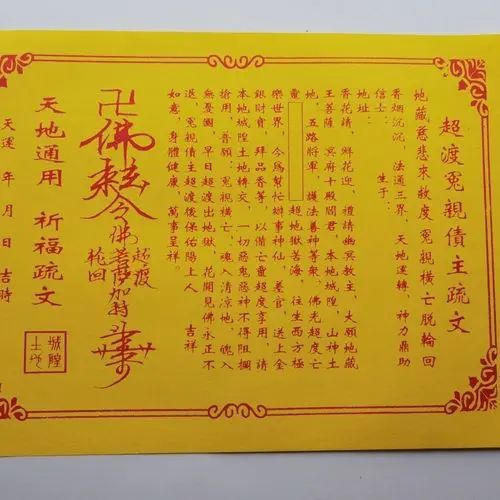 超渡冤親債主疏文
地藏慈悲來救度冤親橫亡脫輪回
香烟沉沉,法通三界,天地運轉,神力鼎助
信士: 生于:
地址:
香花請,鮮花迎,禮請幽冥教主,大願地藏
王菩薩,冥府十殿閻君,本地城隍,山神土
地,五路將軍,護法善神等衆,佛光超度亡
靈 超地獄苦海,往生西方極
樂世界,今爲幫忙辦事神仙,善官,送上金
銀財寶,拜品香等,以備亡靈超度享用,請
本地城隍土地轉交,一切惡鬼惡神不得阻攔
搶用,普願:冤親橫亡,魂入清凉地,魄入
無憂園,早日超渡出地獄,花開見佛永正不
退,冤親債主超渡後保佑陽上人 吉祥
如意,身體健康,萬事呈祥。
超渡
卍佛敕令佛菩薩加持
輪回
天地通用 祈福疏文
城隍
土地
天運 年 月 日 吉時